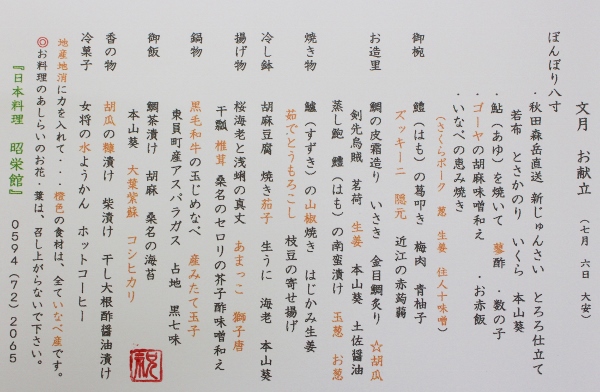 文月 お献立 （七月 六日 大安）
ぼんぼり八寸
・秋田森岳直送 新じゅんさい とろろ仕立て
若布 とさかのり いくら 本山葵
・鮎（あゆ）を焼いて 蓼酢 ・数の子
・ゴーヤの胡麻味噌和え ・お赤飯
・いなべの恵み焼き
（さくらポーク 葱 生姜 住人十味噌）
御椀 鱧（はも）の葛叩き 梅肉 青柚子
ズッキーニ 隠元 近江の赤蒟蒻
お造里 鯛の皮霜造り いさき 金目鯛炙り ☆胡瓜
剣先烏賊 茗荷 生姜 本山葵 土佐醤油
蒸し鮑 鱧（はも）の南蛮漬け 玉葱 お葱
焼き物 鱸（すずき）の山椒焼き はじかみ生姜
茹でとうもろこし 枝豆の寄せ揚げ
冷し鉢 胡麻豆腐 焼き茄子 生うに 海老 本山葵
揚げ物 桜海老と浅蜊の真丈 あまっこ 獅子唐
干瓢 椎茸 桑名のセロリの芥子酢味噌和え
鍋物 黒毛和牛の玉じめなべ 産みたて玉子
東員町産アスパラガス 占地 黒七味
御飯 鯛茶漬け 胡麻 桑名の海苔
本山葵 大葉紫蘇 コシヒカリ
香の物 胡瓜の糠漬け 柴漬け 干し大根酢醤油漬け
冷菓子 女将の水ようかん ホットコーヒー
地産地消に力を入れて・・橙色の食材は、全ていなべ産です。
◎お料理のあしらいのお花・葉は、召し上がらないで下さい。
『日本料理 昭栄館』 0594（72）2065
祝